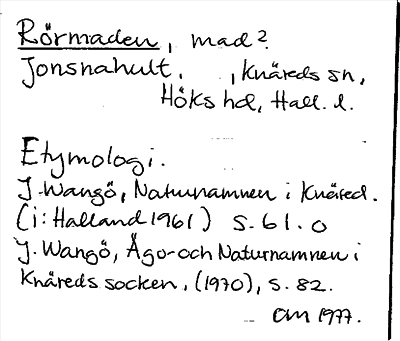 Rörmaden, mad?
Jonsnahult, , Knäreds sn,
Höks hd, Hall. l.
Etymologi.
J. Wangö, Naturnamnen i Knäred.
(i: Halland 1961) s. 61. o
J. Wangö, Ägo- och Naturnamnen i
Knäreds socken, (1970), s. 82.
1977.